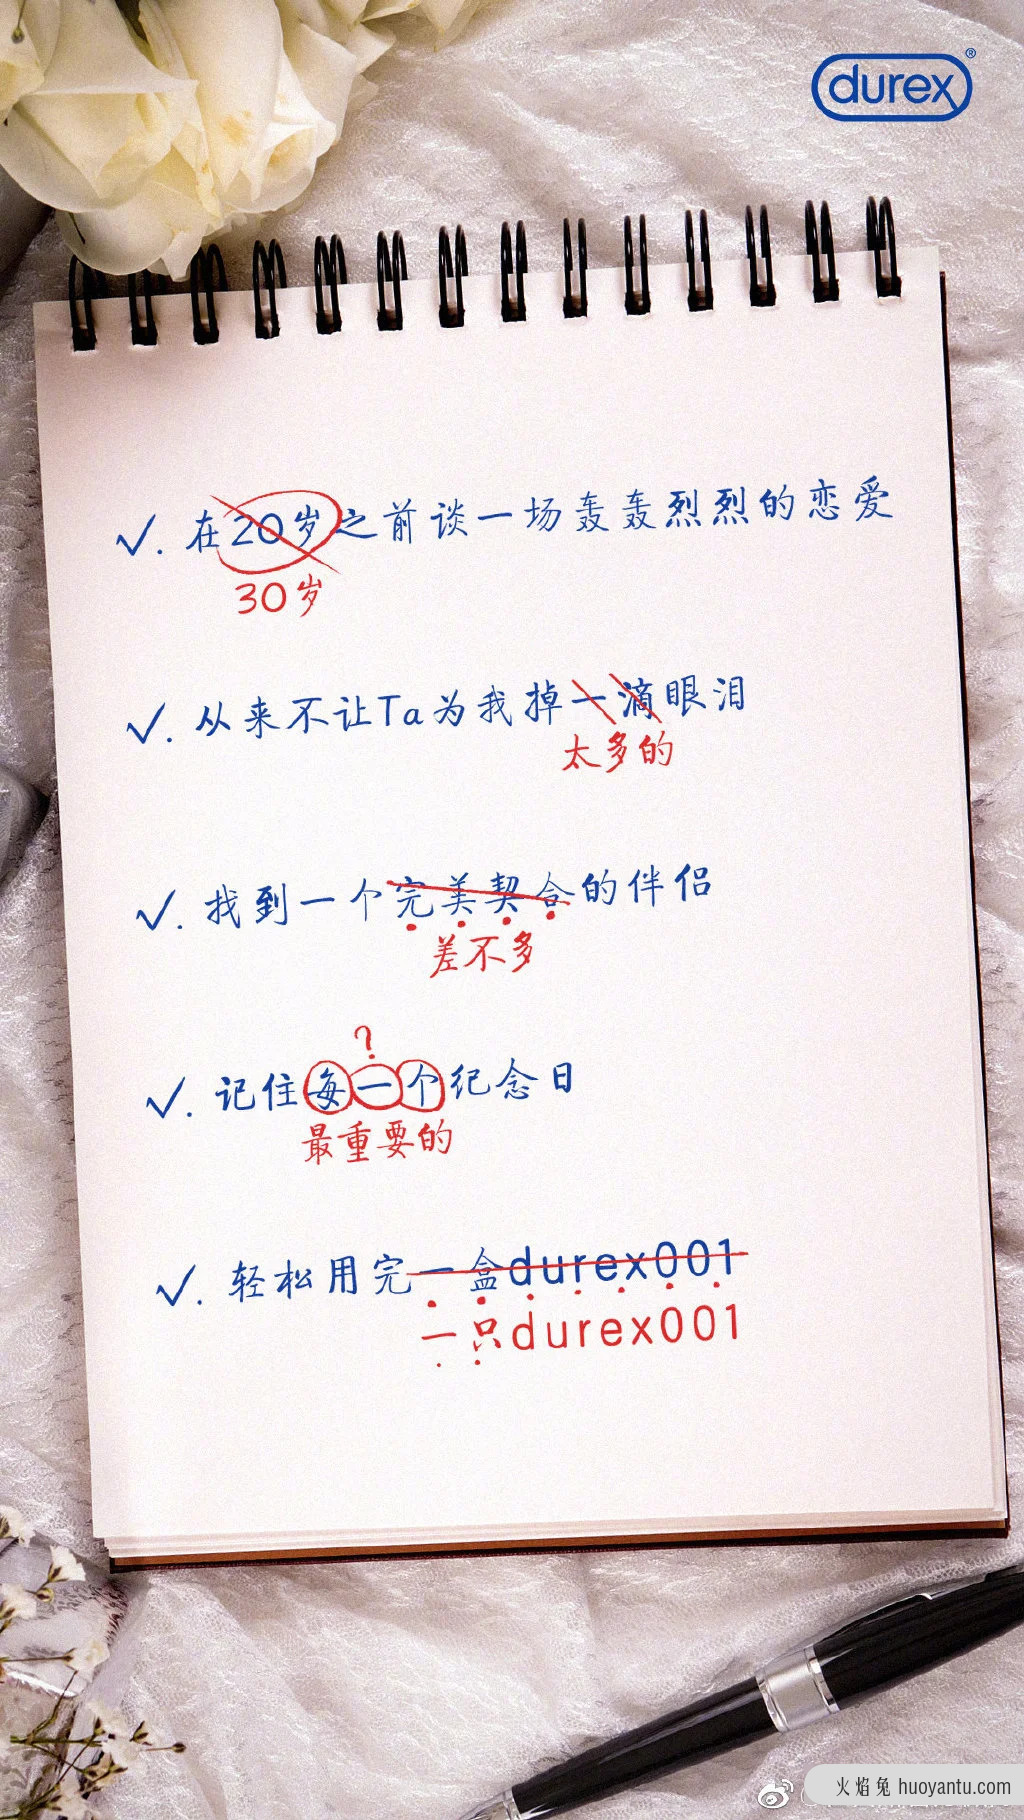 durex®
✓. 在20岁之前谈一场轰轰烈烈的恋爱
30岁
✓. 从来不让Ta为我掉一滴眼泪
太多的
✓. 找到一个完美契合的伴侣
差不多
?
✓. 记住每一个纪念日
最重要的
✓. 轻松用完一盒durex001
一只durex001
火焰兔 huoyantu.com